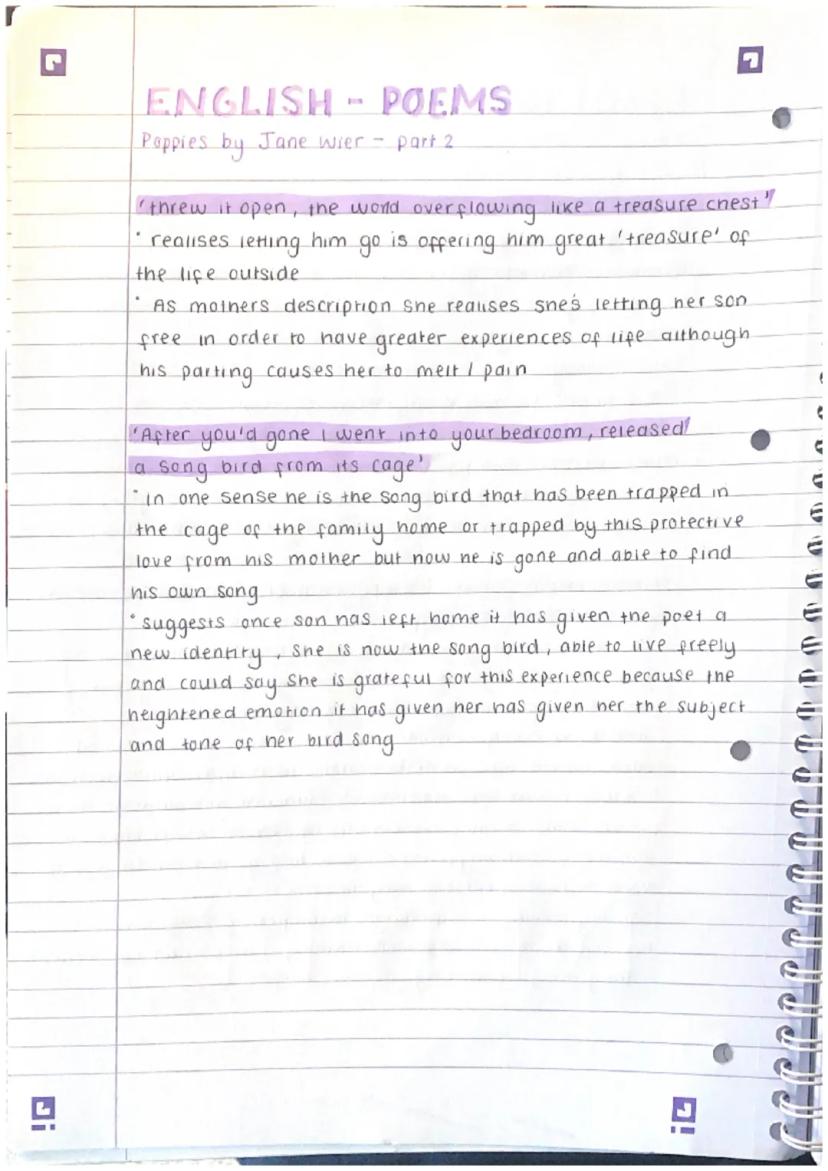 ENGLISH - POEMS
Poppies by Jane Wier - part 2
'threw it open, the world overflowing like a treasure chest'
• realises letting him go is offering him great 'treasure' of
the life outside
• As mothers description she realises she's letting her son
free in order to have greater experiences of life although
his parting causes her to melt / pain
'After you'd gone I went into your bedroom, released'
a song bird from its cage'
• in one sense he is the song bird that has been trapped in
the cage of the family home or trapped by this protective
love from his mother but now he is gone and able to find
his own song
• suggests once son has left home it has given the poet a
new identity, she is now the song bird, able to live freely
and could say she is grateful for this experience because the
heightened emotion it has given her has given her the subject
and tone of her bird song